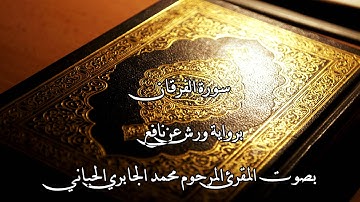 سورة الفرقان
برواية ورش عن نافع
بصوت المقرئ المرحوم محمد الجابري الحياني